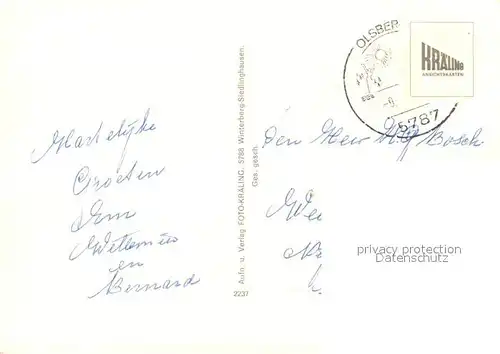 Hartelijke
Groeten
Wim
Willemien
en
Bernard
Aufn. u. Verlag FOTO-KRÄLING, 5788 Winterberg-Siedlinghausen.
Ges. gesch.
2237
OLSBER
5787
KRÄLING
ANSICHTSKARTEN
Den Heer
Bosch
We
privacy protection
Datenschutz